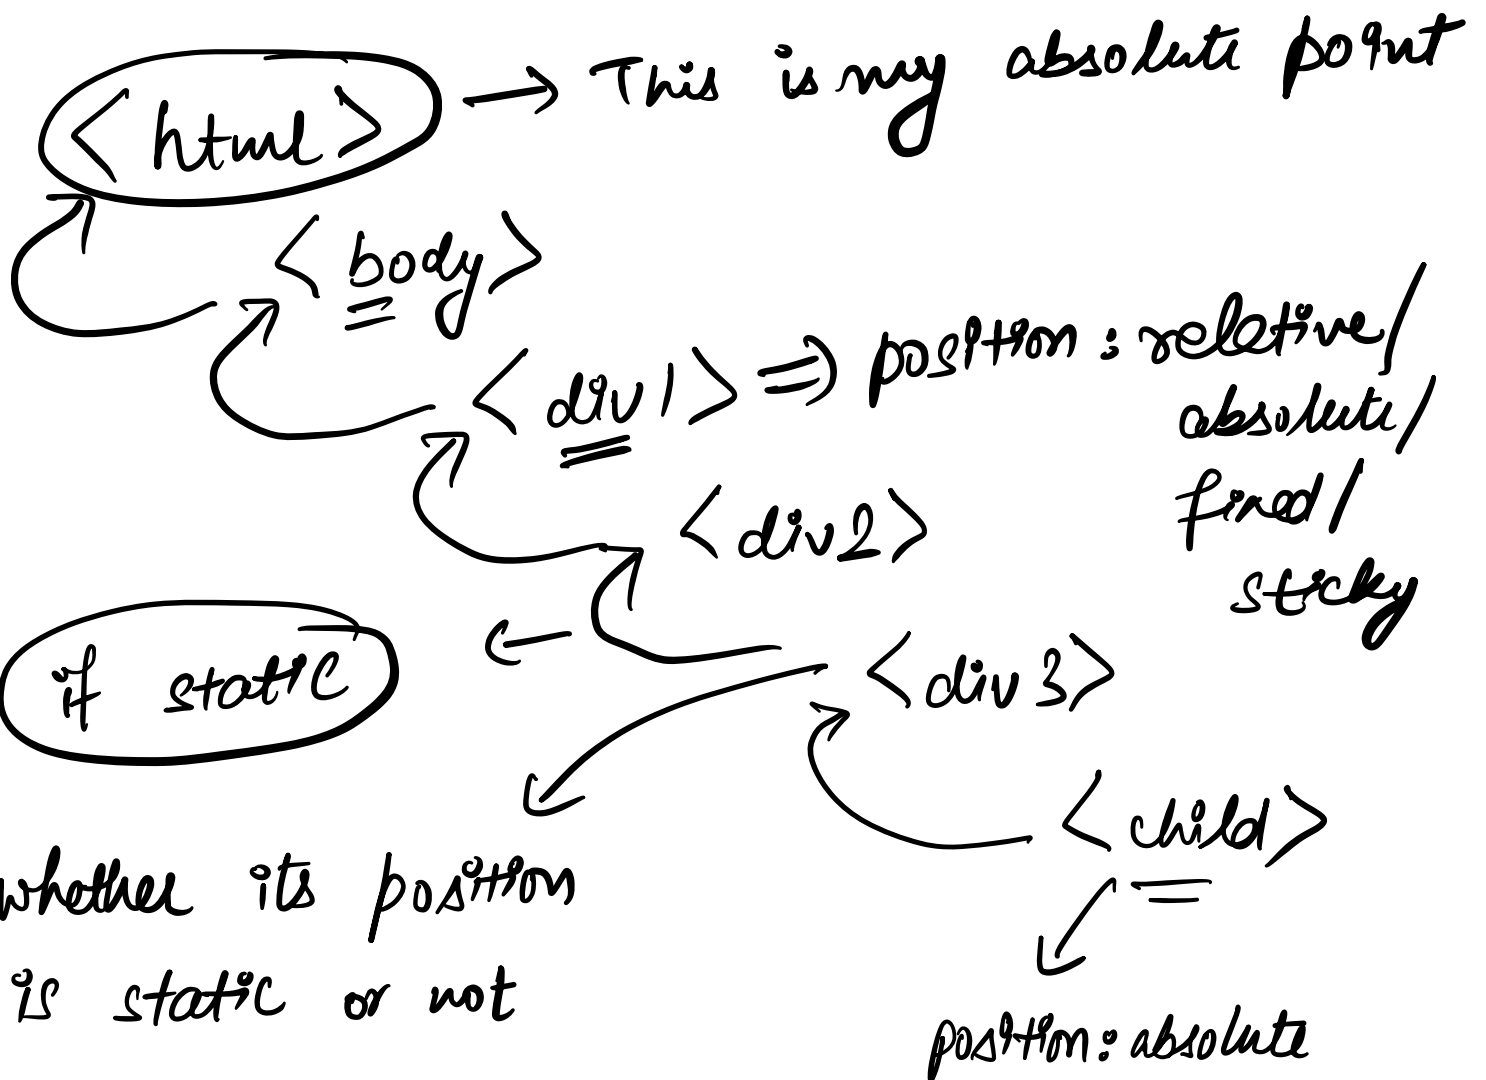 <html> → This is my absolute point
<body>
<div 1> ⇒ position : reletive/
absolute/
fixed/
<div2>
sticky
if static
<div 3>
<child>
whether its position
is static or not
position: absolute